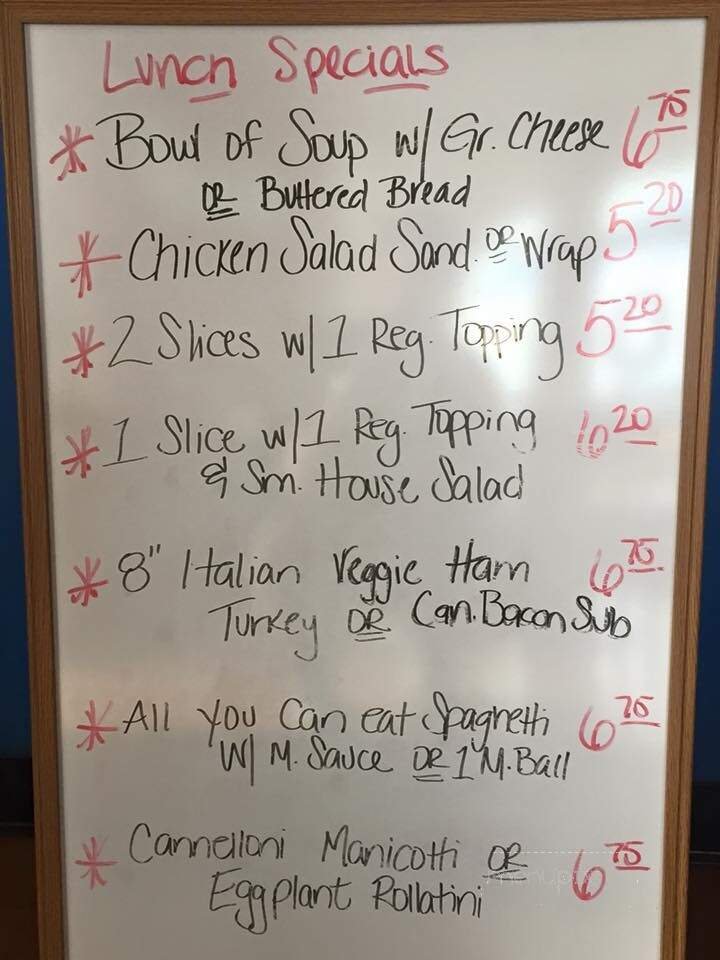 Lunch Specials
* Bowl of Soup w/ Gr. Cheese 6.75
OR Buttered Bread
* Chicken Salad Sand. OR Wrap 5.20
* 2 Slices w/ 1 Reg. Topping 5.20
* 1 Slice w/ 1 Reg. Topping 6.20
& Sm. House Salad
* 8" Italian Veggie Ham 6.75
Turkey OR Can. Bacon Sub
* All You Can eat Spaghetti 6.75
W/ M. Sauce OR 1 M. Ball
* Cannelloni Manicotti OR 6.75
Eggplant Rollatini